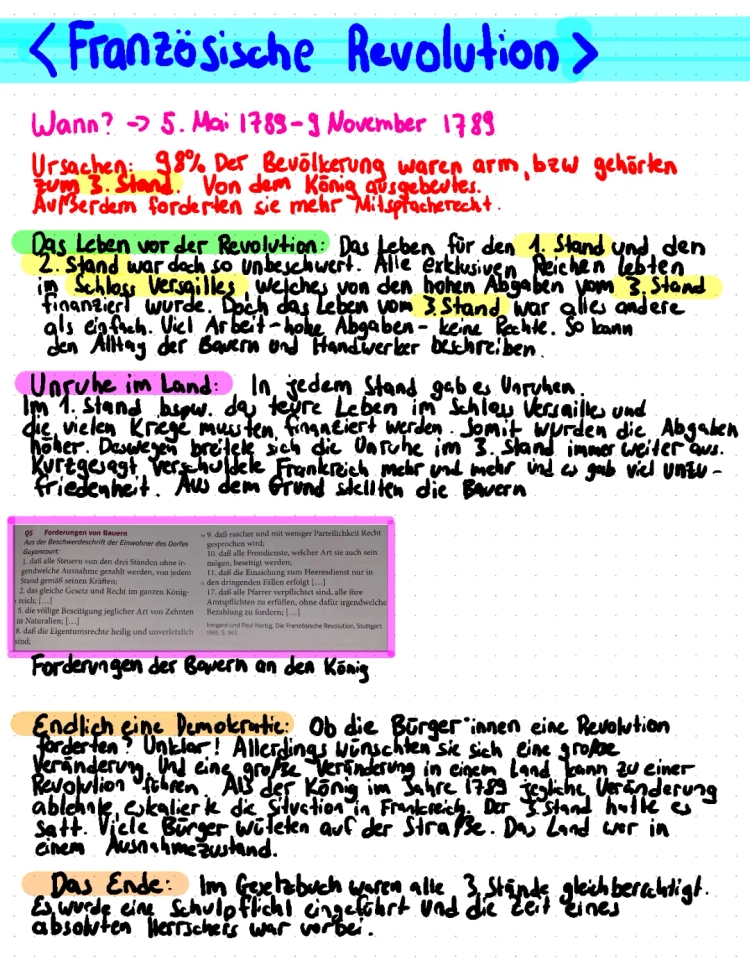 <Französische Revolution>
Wann? -> 5. Mai 1789 - 9 November 1789
Ursachen: 98% Der Bevölkerung waren arm, bzw gehörten
zum 3. Stand. Von dem König ausgebeutes.
Außerdem forderten sie mehr Mitspracherecht.
Das Leben vor der Revolution: Das Leben für den 1. Stand und den
2. Stand war doch so unbeschwert. Alle exklusiven Reichen lebten
im Schloss Versailles, welches von den hohen Abgaben vom 3. Stand
finanziert wurde. Doch das Leben vom 3. Stand war alles andere
als einfach. Viel Arbeit - hohe Abgaben - keine Rechte. So kann
den Alltag der Bauern und Handwerker beschreiben.
Unruhe im Land: In jedem Stand gab es Unruhen.
Im 1. Stand bspw. das teure Leben im Schloss Versailles und
die vielen Kriege mussten finanziert werden. Somit wurden die Abgaben
höher. Deswegen breitete sich die Unruhe im 3. Stand immer weiter aus.
Kurzgesagt verschuldete Frankreich mehr und mehr und es gab viel Unzu-
friedenheit. Aus dem Grund stellten die Bauern
Q5 Forderungen von Bauern
Aus der Beschwerdeschrift der Einwohner des Dorfes
Guyancourt:
1. daß alle Steuern von den drei Ständen ohne ir-
gendwelche Ausnahme gezahlt werden, von jedem
Stand gemäß seinen Kräften;
2. das gleiche Gesetz und Recht im ganzen König-
reich; [...]
5. die völlige Beseitigung jeglicher Art von Zehnten
in Naturalien; [...]
8. daß die Eigentumsrechte heilig und unverletzlich
sind;
9. daß rascher und mit weniger Parteilichkeit Recht
gesprochen wird;
10. daß alle Frondienste, welcher Art sie auch sein
mögen, beseitigt werden;
11. daß die Einziehung zum Heeresdienst nur in
den dringenden Fällen erfolgt [...]
17. daß alle Pfarrer verpflichtet sind, alle ihre
Amtspflichten zu erfüllen, ohne dafür irgendwelche
Bezahlung zu fordern; [...]
Irmgard und Paul Hartig, Die Französische Revolution, Stuttgart
S. 361.
Forderungen der Bauern an den König
Endlich eine Demokratie: Ob die Bürger*innen eine Revolution
forderten? Unklar! Allerdings wünschten sie sich eine große
Veränderung. Und eine große Veränderung in einem Land kann zu einer
Revolution führen. Als der König im Jahre 1789 jegliche Veränderung
ablehnte, eskalierte die Situation in Frankreich. Der 3. Stand hatte es
satt. Viele Bürger wüteten auf der Straße. Das Land war in
einem Ausnahmezustand.
Das Ende: Im Gesetzbuch waren alle 3 Stände gleichberechtigt.
Es wurde eine Schulpflicht eingeführt und die Zeit eines
absoluten Herrschers war vorbei.